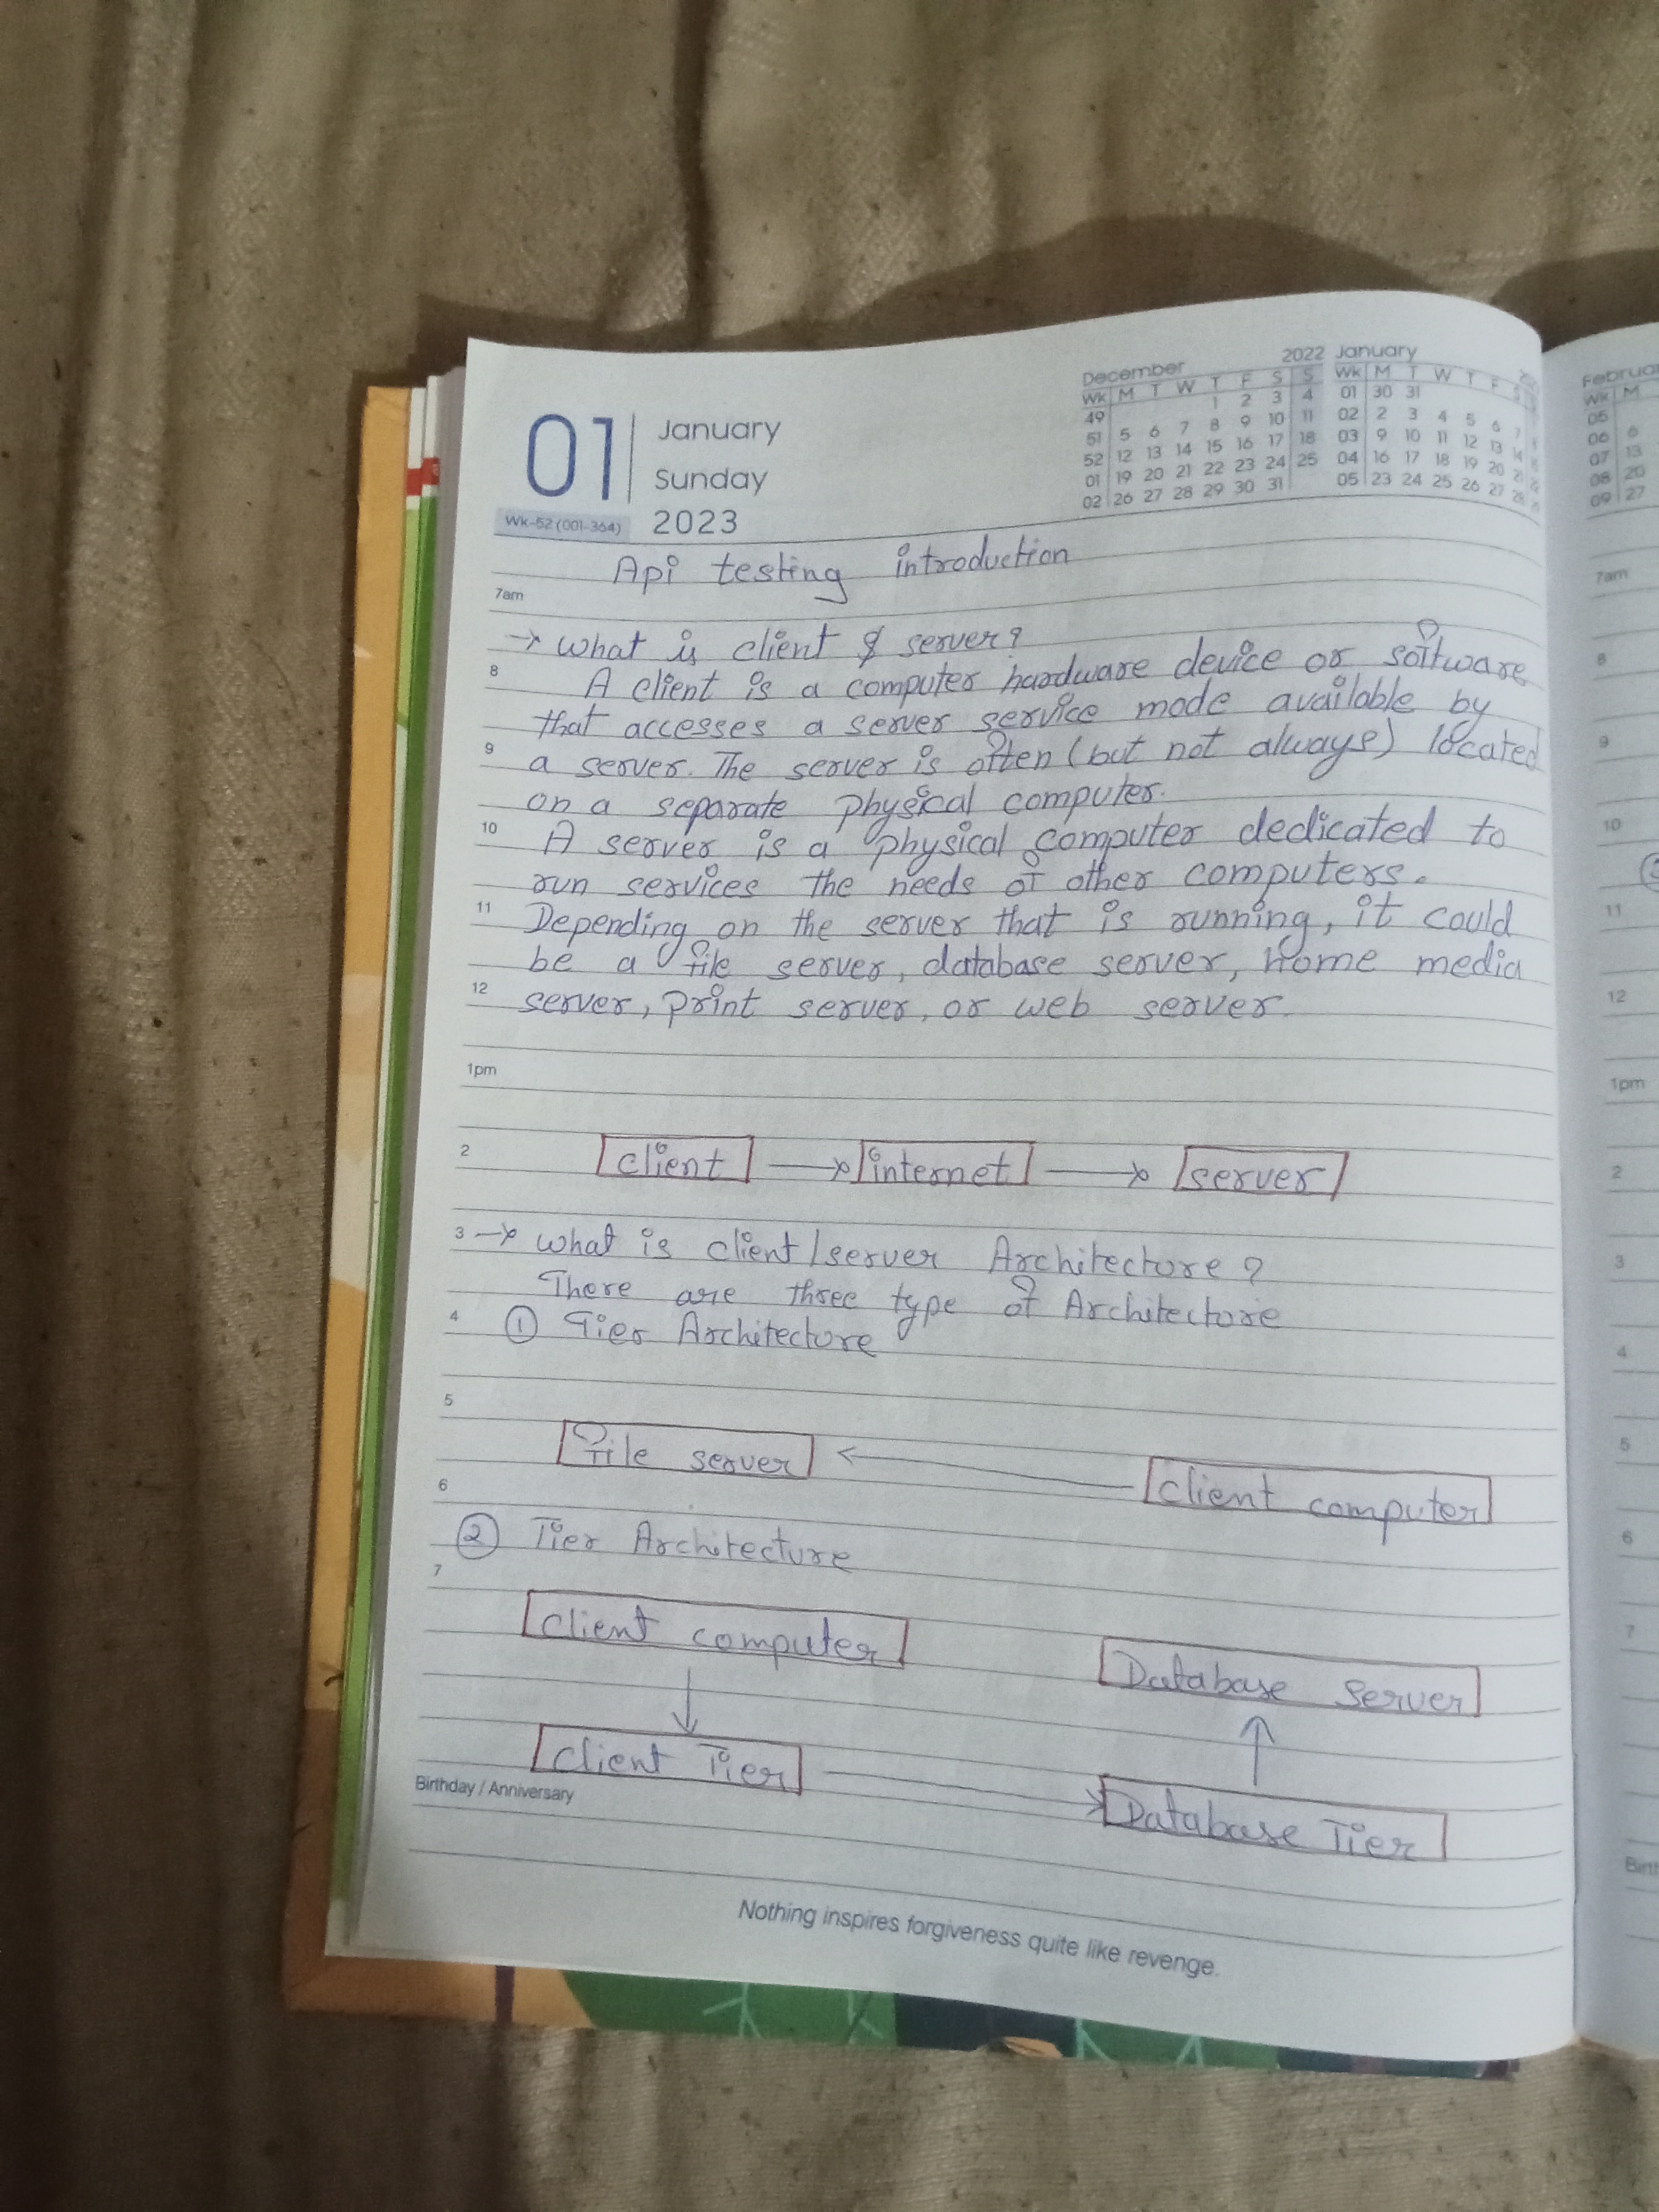 01
January
Sunday
2023
Wk-52 (001-364)
December 2022
Wk M T W T F S S
49 1 2 3 4
51 5 6 7 8 9 10 11
52 12 13 14 15 16 17 18
01 19 20 21 22 23 24 25
02 26 27 28 29 30 31
January
Wk M T W T F S
01 30 31
02 2 3 4 5 6 7
03 9 10 11 12 13 14
04 16 17 18 19 20 21
05 23 24 25 26 27 28
Api testing introduction
7am
→ what is client & server?
8 A client is a computer hardware device or software
that accesses a server service mode available by
9 a server. The server is often (but not always) located
on a separate physical computer.
10 A server is a physical computer dedicated to
run services the needs of other computers.
11 Depending on the server that is running, it could
be a file server, database server, home media
12 server, print server, or web server.
1pm
2 client → internet → server
3 → what is client/server Architecture?
There are three type of Architecture
4 ① Tier Architecture
5
file server ← client computer
6
② Tier Architecture
7
client computer
Database Server
↓ ↑
client Tier → Database Tier
Birthday / Anniversary
Nothing inspires forgiveness quite like revenge.
Februar
Wk M
05
06 6
07 13
08 20
09 27
7am
8
9
10
11
12
1pm
2
3
4
5
6
7
Birth